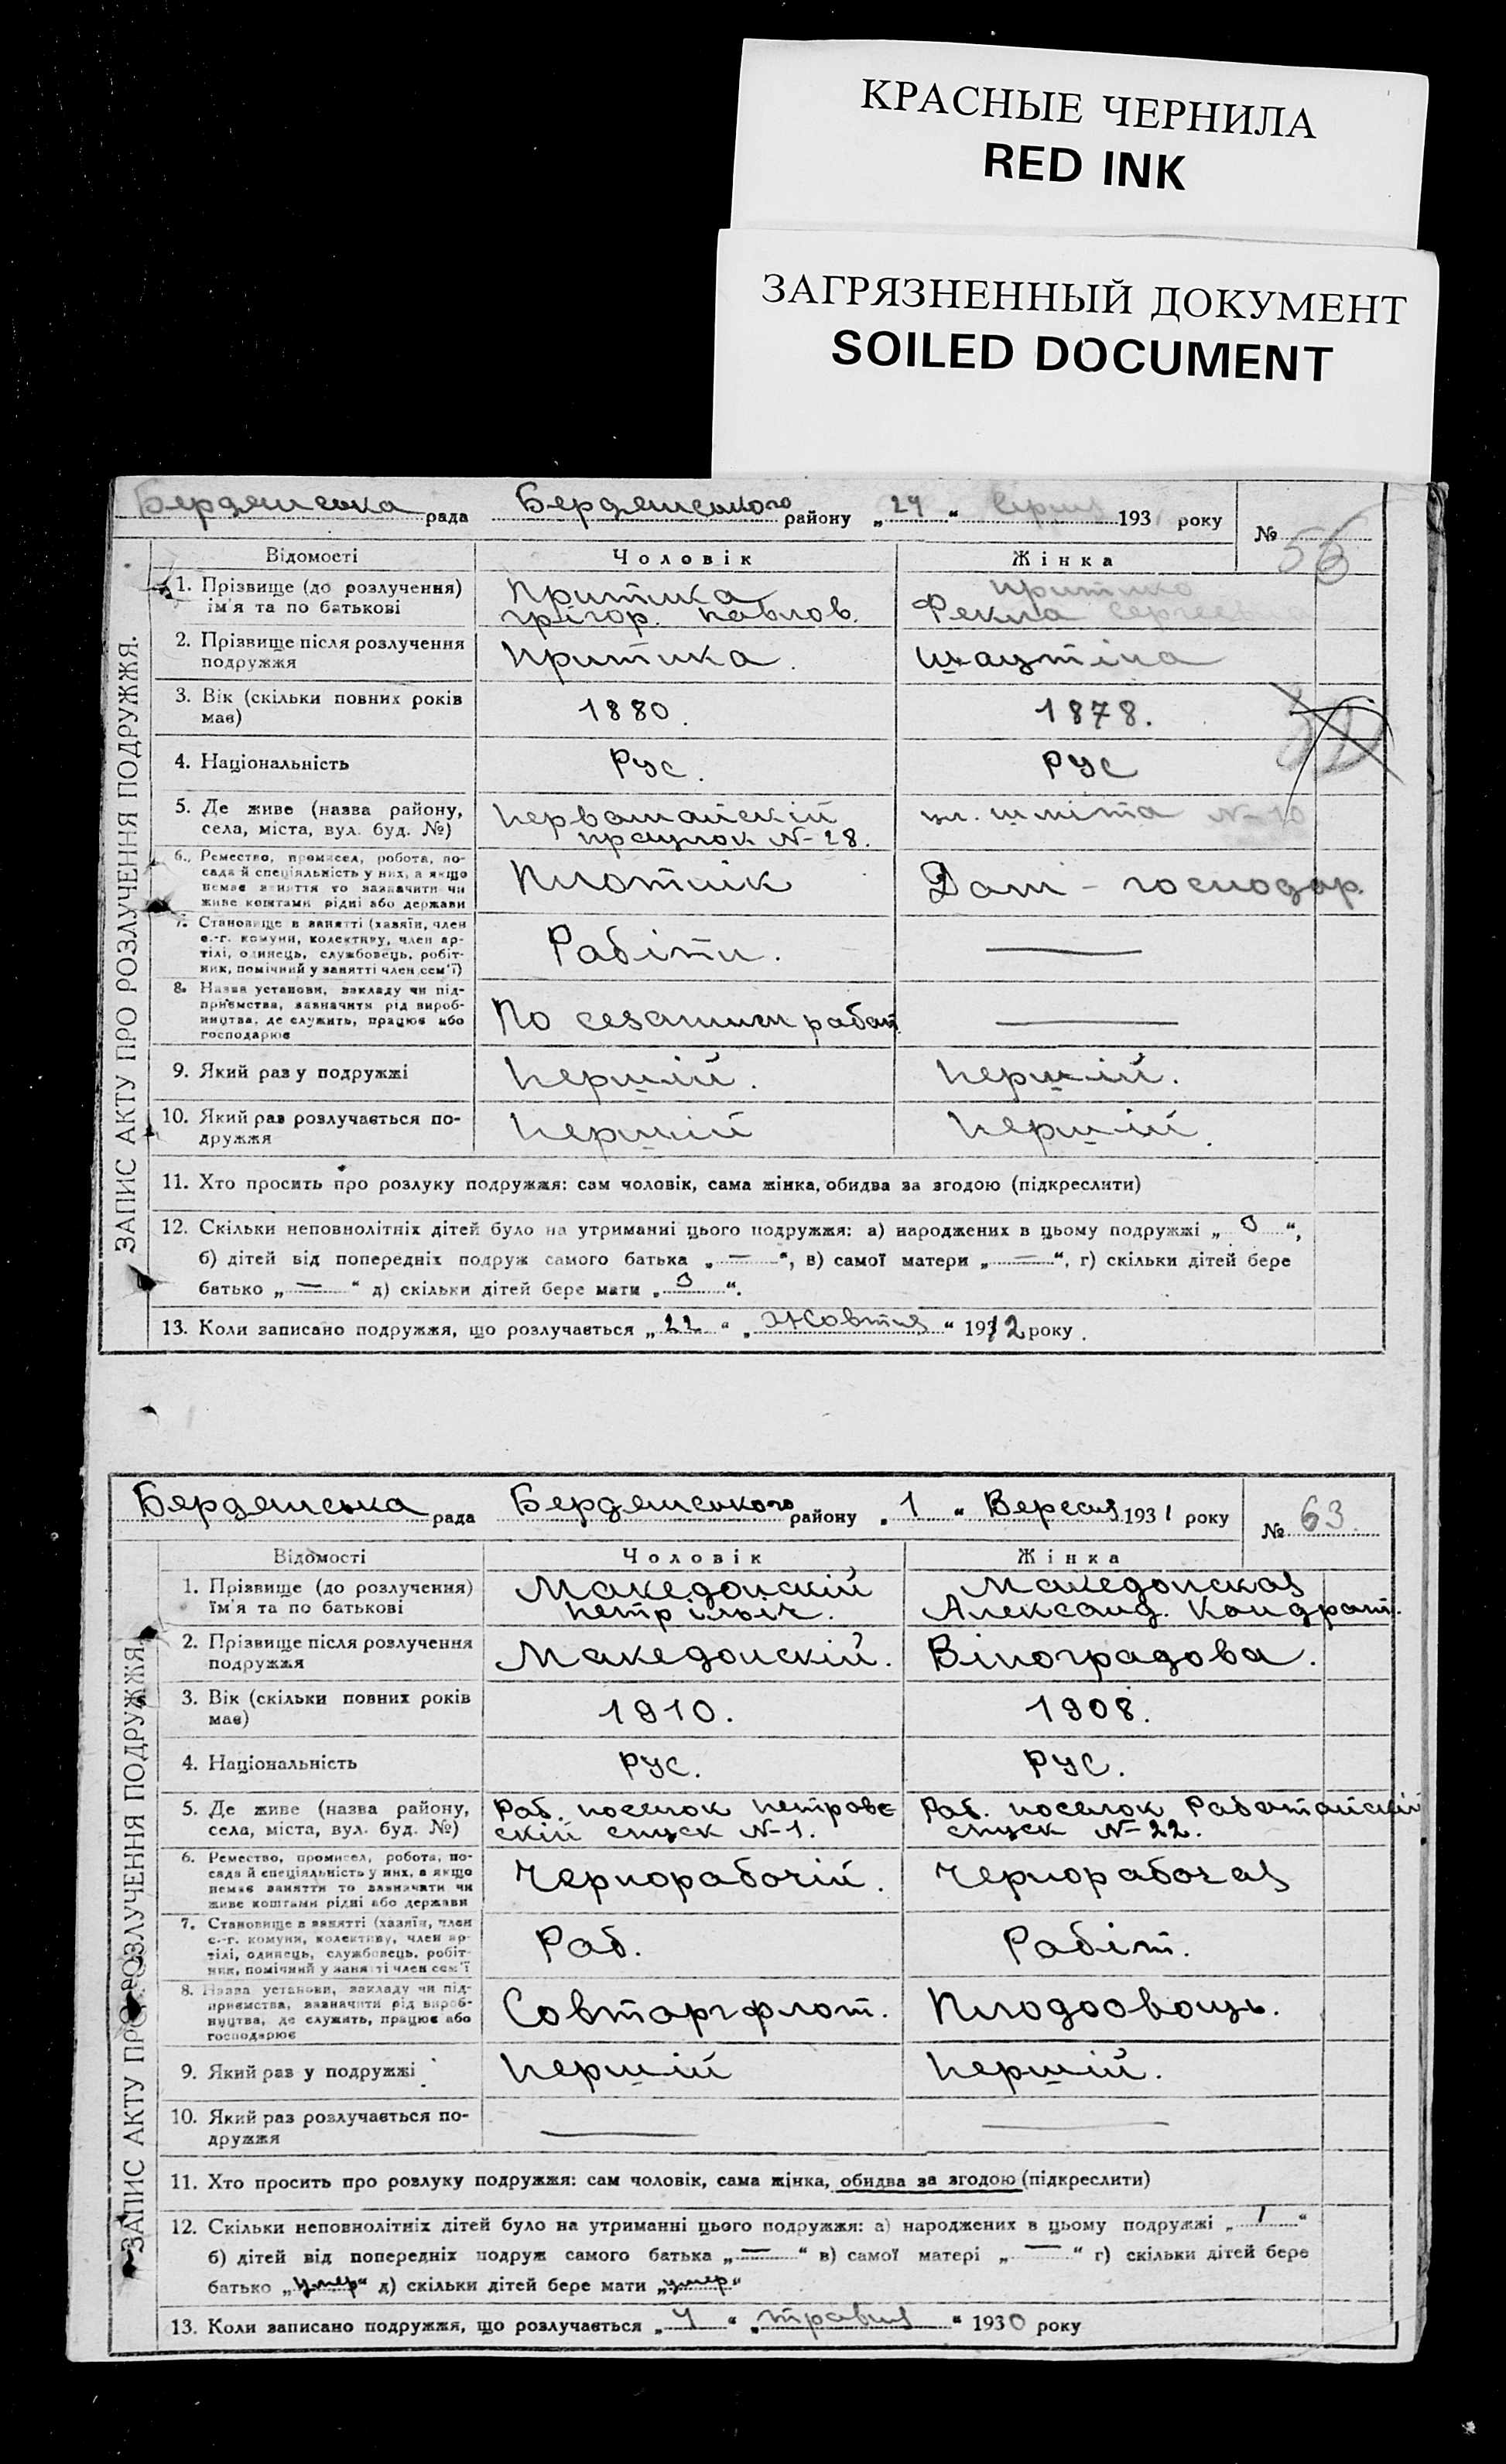 КРАСНЫЕ ЧЕРНИЛА
RED INK
ЗАГРЯЗНЕННЫЙ ДОКУМЕНТ
SOILED DOCUMENT
Бердянська рада Бердянського району „ “ 193 року
№ 56
ЗАПИС АКТУ ПРО РОЗЛУЧЕННЯ ПОДРУЖЖЯ.
Відомості Чоловік Жінка
1. Прізвище (до розлучення) Притика Притико
ім'я та по батькові Грігор. Павлов. Фекла Сергеевна
2. Прізвище після розлучення Притика.
подружжя
3. Вік (скільки повних років 1880. 1878.
має)
4. Національність Рус. Рус
5. Де живе (назва району, Первомайскій ул. Шміта N-10
села, міста, вул. буд. №) N-28.
6. Ремество, промисел, робота, по- Плотнік Дом-господар.
сада й спеціяльність у них, а якщо
немає заняття то зазначити чи
живе коштами рідні або держави
7. Становище в занятті (хазяїн, член Рабітн. —
с.-г. комуни, колективу, член ар-
тілі, одинець, службовець, робіт-
ник, помічний у занятті член сем'ї)
8. Назва установи, закладу чи під- По работ. —
приємства, зазначити рід вироб-
ництва, де служить, працює або
господарює
9. Який раз у подружжі Першій. Першій.
10. Який раз розлучається по- Першій Першій.
дружжя
11. Хто просить про розлуку подружжя: сам чоловік, сама жінка, обидва за згодою (підкреслити)
12. Скільки неповнолітніх дітей було на утриманні цього подружжя: а) народжених в цьому подружжі „ “,
б) дітей від попередніх подруж самого батька „—“, в) самої матери „—“, г) скільки дітей бере
батько „—“ д) скільки дітей бере мати „ “.
13. Коли записано подружжя, що розлучається „22“ „Жовтня“ 19 2 року.
Бердянська рада Бердянського району „1“ Вересня 1931 року
№ 63
ЗАПИС АКТУ ПРО РОЗЛУЧЕННЯ ПОДРУЖЖЯ.
Відомості Чоловік Жінка
1. Прізвище (до розлучення) Македонскій Македонская
ім'я та по батькові Петр Ільіч. Александ. Кондрат.
2. Прізвище після розлучення Македонскій. Віноградова.
подружжя
3. Вік (скільки повних років 1910. 1908.
має)
4. Національність Рус. Рус.
5. Де живе (назва району, Раб. поселок Петров- Раб. поселок
села, міста, вул. буд. №) скій спуск N-1. спуск N-22.
6. Ремество, промисел, робота, по- Чернорабочій. Чернорабочая
сада й спеціяльність у них, а якщо
немає заняття то зазначити чи
живе коштами рідні або держави
7. Становище в занятті (хазяїн, член Раб. Рабіт.
с.-г. комуни, колективу, член ар-
тілі, одинець, службовець, робіт-
ник, помічний у занятті член сем'ї
8. Назва установи, закладу чи під- Совторгфлот. Плодоовощь.
приємства, зазначити рід вироб-
ництва, де служить, працює або
господарює
9. Який раз у подружжі Першій Першій.
10. Який раз розлучається по- — —
дружжя
11. Хто просить про розлуку подружжя: сам чоловік, сама жінка, обидва за згодою (підкреслити)
12. Скільки неповнолітніх дітей було на утриманні цього подружжя: а) народжених в цьому подружжі „1“
б) дітей від попередніх подруж самого батька „—“ в) самої матері „—“ г) скільки дітей бере
батько „умер“ д) скільки дітей бере мати „умер“
13. Коли записано подружжя, що розлучається „ “ „травня“ 1930 року